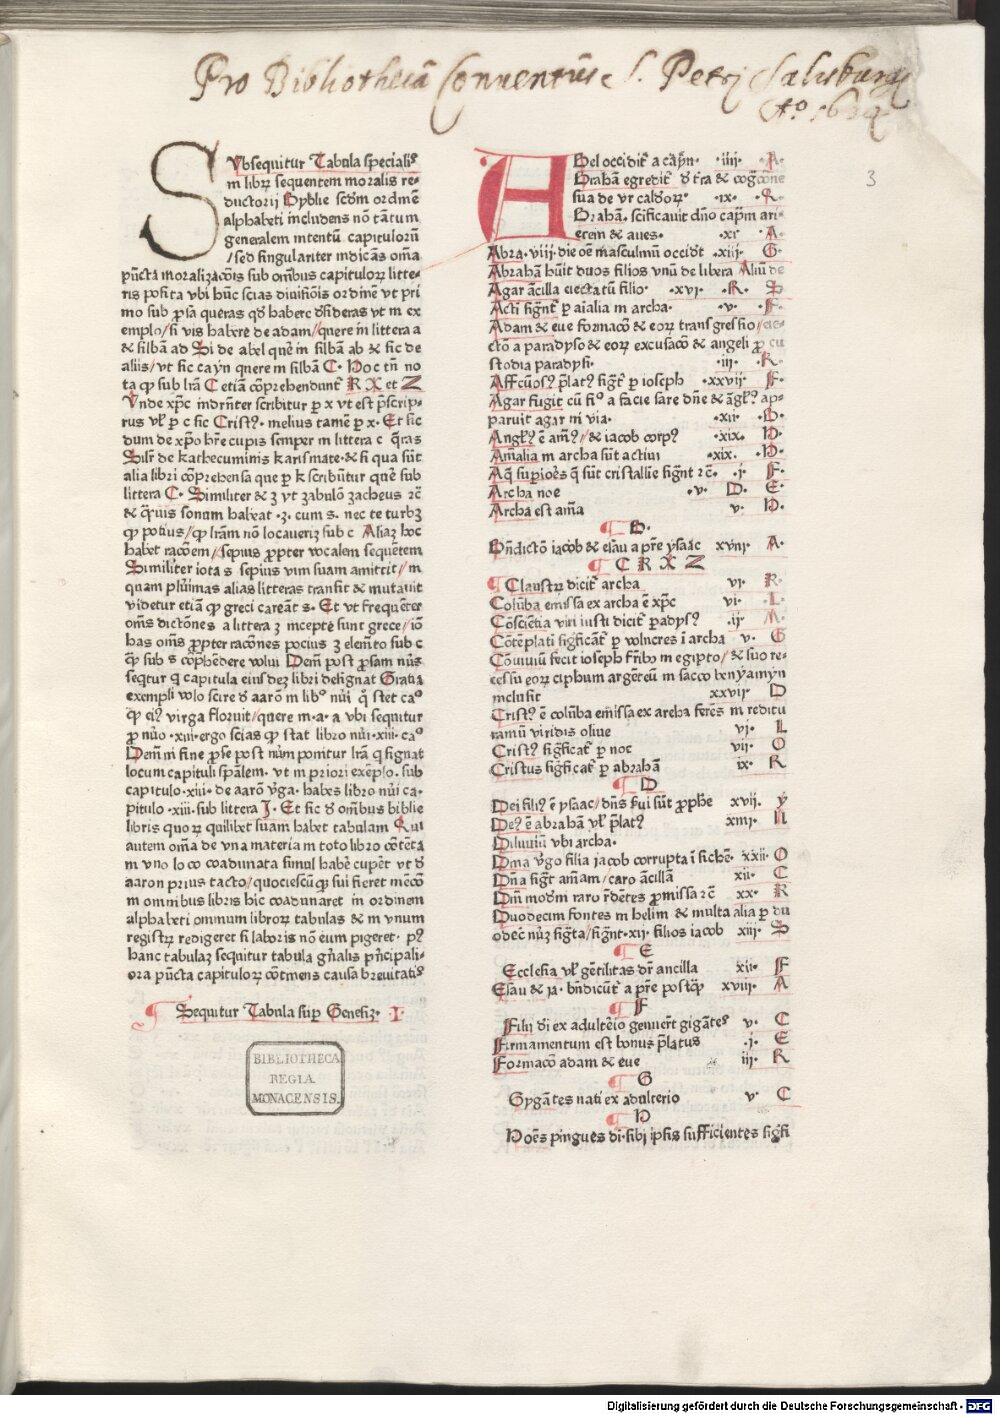 Pro Bibliothecā Conventus S. Petrj Salisburg
Aō 16
3
SVbsequitur Tabula specialꝭ
in libꝝ sequentem moralis re-
ductorij Byblie scdm ordinē
alphabeti includens nō tātum
generalem intentū capitulorū
/sed singulariter indicās oīa
pūcta moralizacōis sub oībus capituloꝝ litte-
ris posita vbi hūc scias diuisiōis ordinē vt pri
mo sub ꝓsa queras qd habere desideras vt in ex
emplo/si vis habere de adam/quere in littera a
& sillbā ad Si de abel quere in sillbā ab & sic de
aliis/vt sic cayn quere in sillbā C. Hoc tn no
ta ꝙ sub lrā C etiā cōprehendunt R X et Z
Vnde xp̄c indrn̄ter scribitur p x vt est p̄scrip-
tus vl p c sic Crist9. melius tamē p x. Et sic
dum de xp̄o hr̄e cupis semper in littera c q̄ras
Silr de kathecuminis karismate. & si qua sūt
alia libri cōprehensa que p k scribūtur quere sub
littera C. Similiter & z vt zabulō zacheus rc̄
& q̄uis sonum habeat .z. cum s. nec te turbꝫ
ꝙ potius/ꝙ lrām nō locauerīs sub c Aliaꝫ hoc
habet racōem/sepius ꝓpter vocalem sequētem
Similiter iota s sepius vim suam amittit/in
quam plurimas alias litteras transit & mutauit
videtur etiā ꝙ greci careāt s. Et vt frequēter
oms dictōnes a littera z incepte sunt grece/iō
has oms ꝓpter racōnes pocius z elemēto sub c
ꝙ sub s cōprehēdere volui Dem post ꝓsam nūs
seqtur q capitula eiusdeꝫ libri designat Gratia
exempli volo scire d aarō in libro nūi q stet ca°
ꝙ ei9 virga floruit/quere in .a. a vbi sequitur
ꝓ nūo .xiii. ergo scias ꝙ stat libro nūi .xiii. ca°
Dem in fine ꝓse post num ponitur lrā q signat
locum capituli spālem. vt in priori exēplo. sub
capitulo .xiii. de aarō vga. habes libro nūi ca-
pitulo .xiii. sub littera I. Et sic d omībus biblie
libris quoꝝ quilibet suam habet tabulam Qui
autem omīa de vna materia in toto libro cōtēta
in vno loco coadunata simul habē cupēt vt d
aaron prius tacto/quociēscūꝙ sui fieret mēcō
in omnibus libris hic coadunaret in ordinem
alphabeti omnium libroꝝ tabulas & in vnum
registꝝ redigeret si laboris nō eum pigeret. p9
hanc tabulaꝫ sequitur tabula gn̄alis pn̄cipali-
ora pūcta capituloꝝ cōtinens causa breuitatꝭ
¶ Sequitur Tabula sup Genesiꝫ .I.
BIBLIOTHECA
REGIA
MONACENSIS.
ABel occidit a cayn. .iiii. A.
Brahā egredit d tra & cogcōne
sua de vr caldoꝝ .ix. .R.
Brahā. scificauit dn̄o capm ari-
etem & aues. .xv. A.
Abra. viij. die oē masculinū occidt .xiii. G.
Abrahā huit duos filios vnū de libera Aliū de
Agar ācilla eiectatū filio. .xvi. .R. S
Acti signt p aialia in archa. .v. .F.
Adam & eue formacō & eoꝝ transgressio/eie-
ctō a paradyso & eoꝝ excusacō & angeli ꝓ cu
stodia paradysi. .iii. .R.
Affcuos9 p̄lat9 signt p ioseph .xxvii. F.
Agar fugit cū fi° a facie sare dn̄e & āgl9 ap-
paruit agar in via. .xii. .B.
Angl9 ē aīa/& iacob corp9 .xix. .H.
Aīalia in archa sūt actiui .xix. .H.
Aq superiores q sūt cristallie signt rc̄. .i. F.
Archa noe .v. D. E.
Archa est aīa v. H.
¶ B.
Bn̄dictō iacob & esau a pre ysaac xvni A.
¶ C R X Z
¶ Claustꝝ dicit archa vi. R.
Colūba emissa ex archa ē xp̄c vi. .L.
Cōsciētia viri iusti dicit pdys9 .ij. A.
Cōtēplati significāt p volucres i archa v. G
Cōuiuiū fecit ioseph frib9 in egipto/& suo re-
cessu eoꝝ ciphum argēteū in sacco beniamyn
inclusit xxvij. D
Crist9 ē colūba emissa ex archa ferēs in reditu
ramū viridis oliue vj. L
Crist9 significat p noe vij. O
Cristus significat p abrahā ix. R
¶ D
Dei fili9 ē ysaac/dn̄s sui sūt ꝓphe xvij. y
De9 ē abrahā vl p̄lat9 xmj. N
Diluuiū vbi archa.
Dina vgo filia iacob corrupta i sichē. xxii. O
Dn̄a signt aīam/caro ācillā xii. C
Dn̄i modm raro rdētes ꝓmissa rc̄ xx. R
Duodecim fontes in helim & multa alia p du
odec nūꝫ signta/signt. xij. filios iacob xiij. S
¶ E
Ecclesia vl gētilitas dr ancilla xii. F
Esau & ia. bn̄dicūt a pre postꝙ xviij. A
¶ F
Filij di ex adulteio genuert gigātes v. C
Firmamentum est bonus p̄latus .i. E
Formacō adam & eue iij. R
¶ G
Gygātes nati ex adulterio v. C
¶ H
Hoēs pingues di. sibi ipsis sufficientes signi
Digitalisierung gefördert durch die Deutsche Forschungsgemeinschaft - DFG